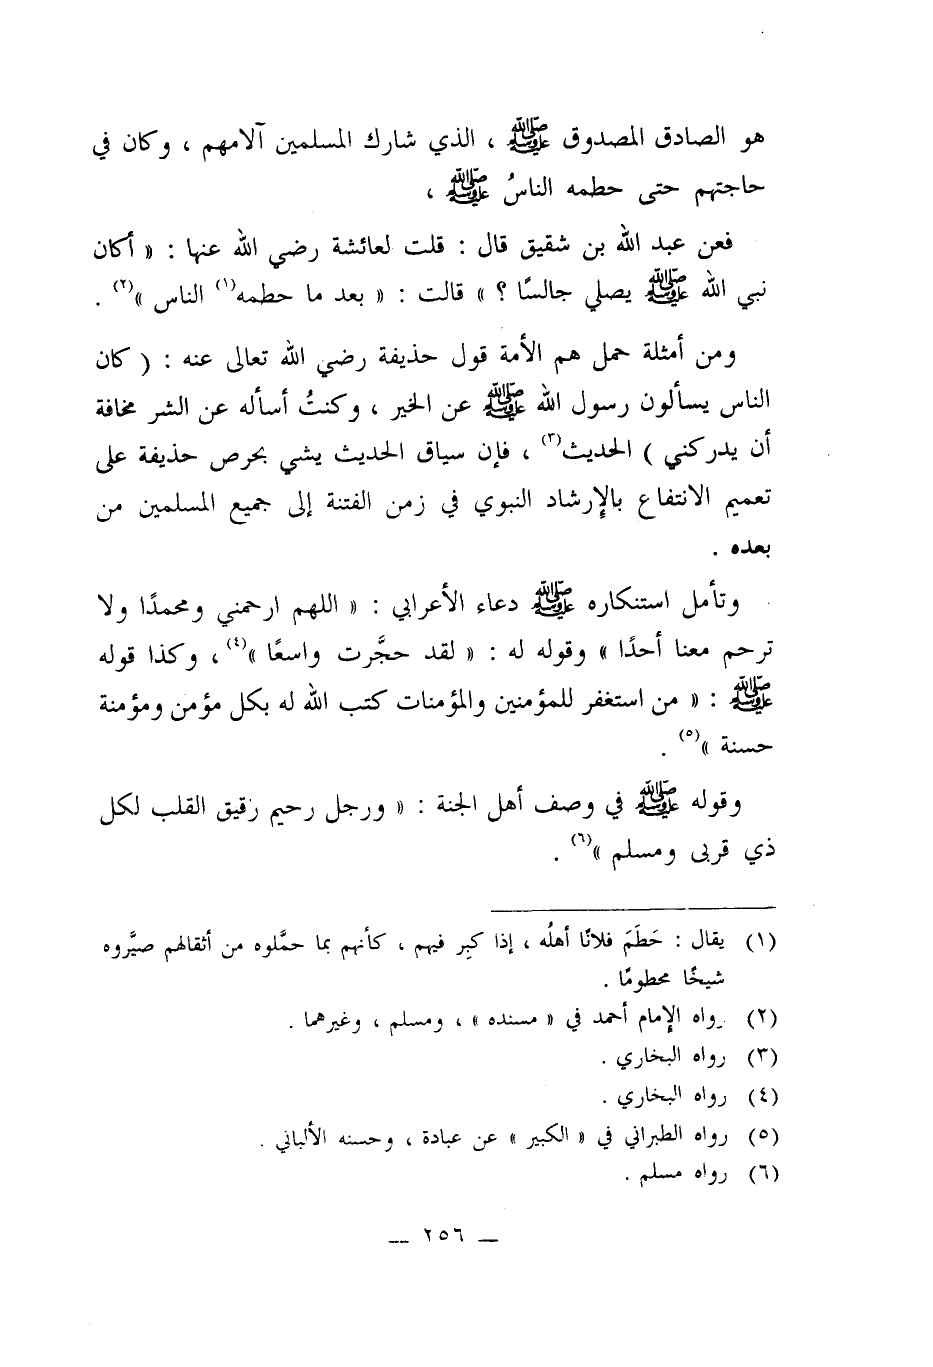 هو الصادق المصدوق ﷺ ، الذي شارك المسلمين آلامهم ، وكان في
حاجتهم حتى حطمه الناسُ ﷺ ،
فعن عبد الله بن شقيق قال : قلت لعائشة رضي الله عنها : « أكان
نبي الله ﷺ يصلي جالسًا ؟ » قالت : « بعد ما حطمه(١) الناس »(٢) .
ومن أمثلة حمل هم الأمة قول حذيفة رضي الله تعالى عنه : ( كان
الناس يسألون رسول الله ﷺ عن الخير ، وكنتُ أسأله عن الشر مخافة
أن يدركني ) الحديث(٣) ، فإن سياق الحديث يشي بحرص حذيفة على
تعميم الانتفاع بالإرشاد النبوي في زمن الفتنة إلى جميع المسلمين من
بعده .
وتأمل استنكاره ﷺ دعاء الأعرابي : « اللهم ارحمني ومحمدًا ولا
ترحم معنا أحدًا » وقوله له : « لقد حجَّرت واسعًا »(٤) ، وكذا قوله
ﷺ : « من استغفر للمؤمنين والمؤمنات كتب الله له بكل مؤمن ومؤمنة
حسنة »(٥) .
وقوله ﷺ في وصف أهل الجنة : « ورجل رحيم رقيق القلب لكل
ذي قربى ومسلم »(٦) .
(١) يقال : حَطَمَ فلانًا أهلُه ، إذا كبِر فيهم ، كأنهم بما حمَّلوه من أثقالهم صيَّروه
شيخًا محطومًا .
(٢) رواه الإمام أحمد في « مسنده » ، ومسلم ، وغيرهما .
(٣) رواه البخاري .
(٤) رواه البخاري .
(٥) رواه الطبراني في « الكبير » عن عبادة ، وحسنه الألباني .
(٦) رواه مسلم .
— ٢٥٦ —